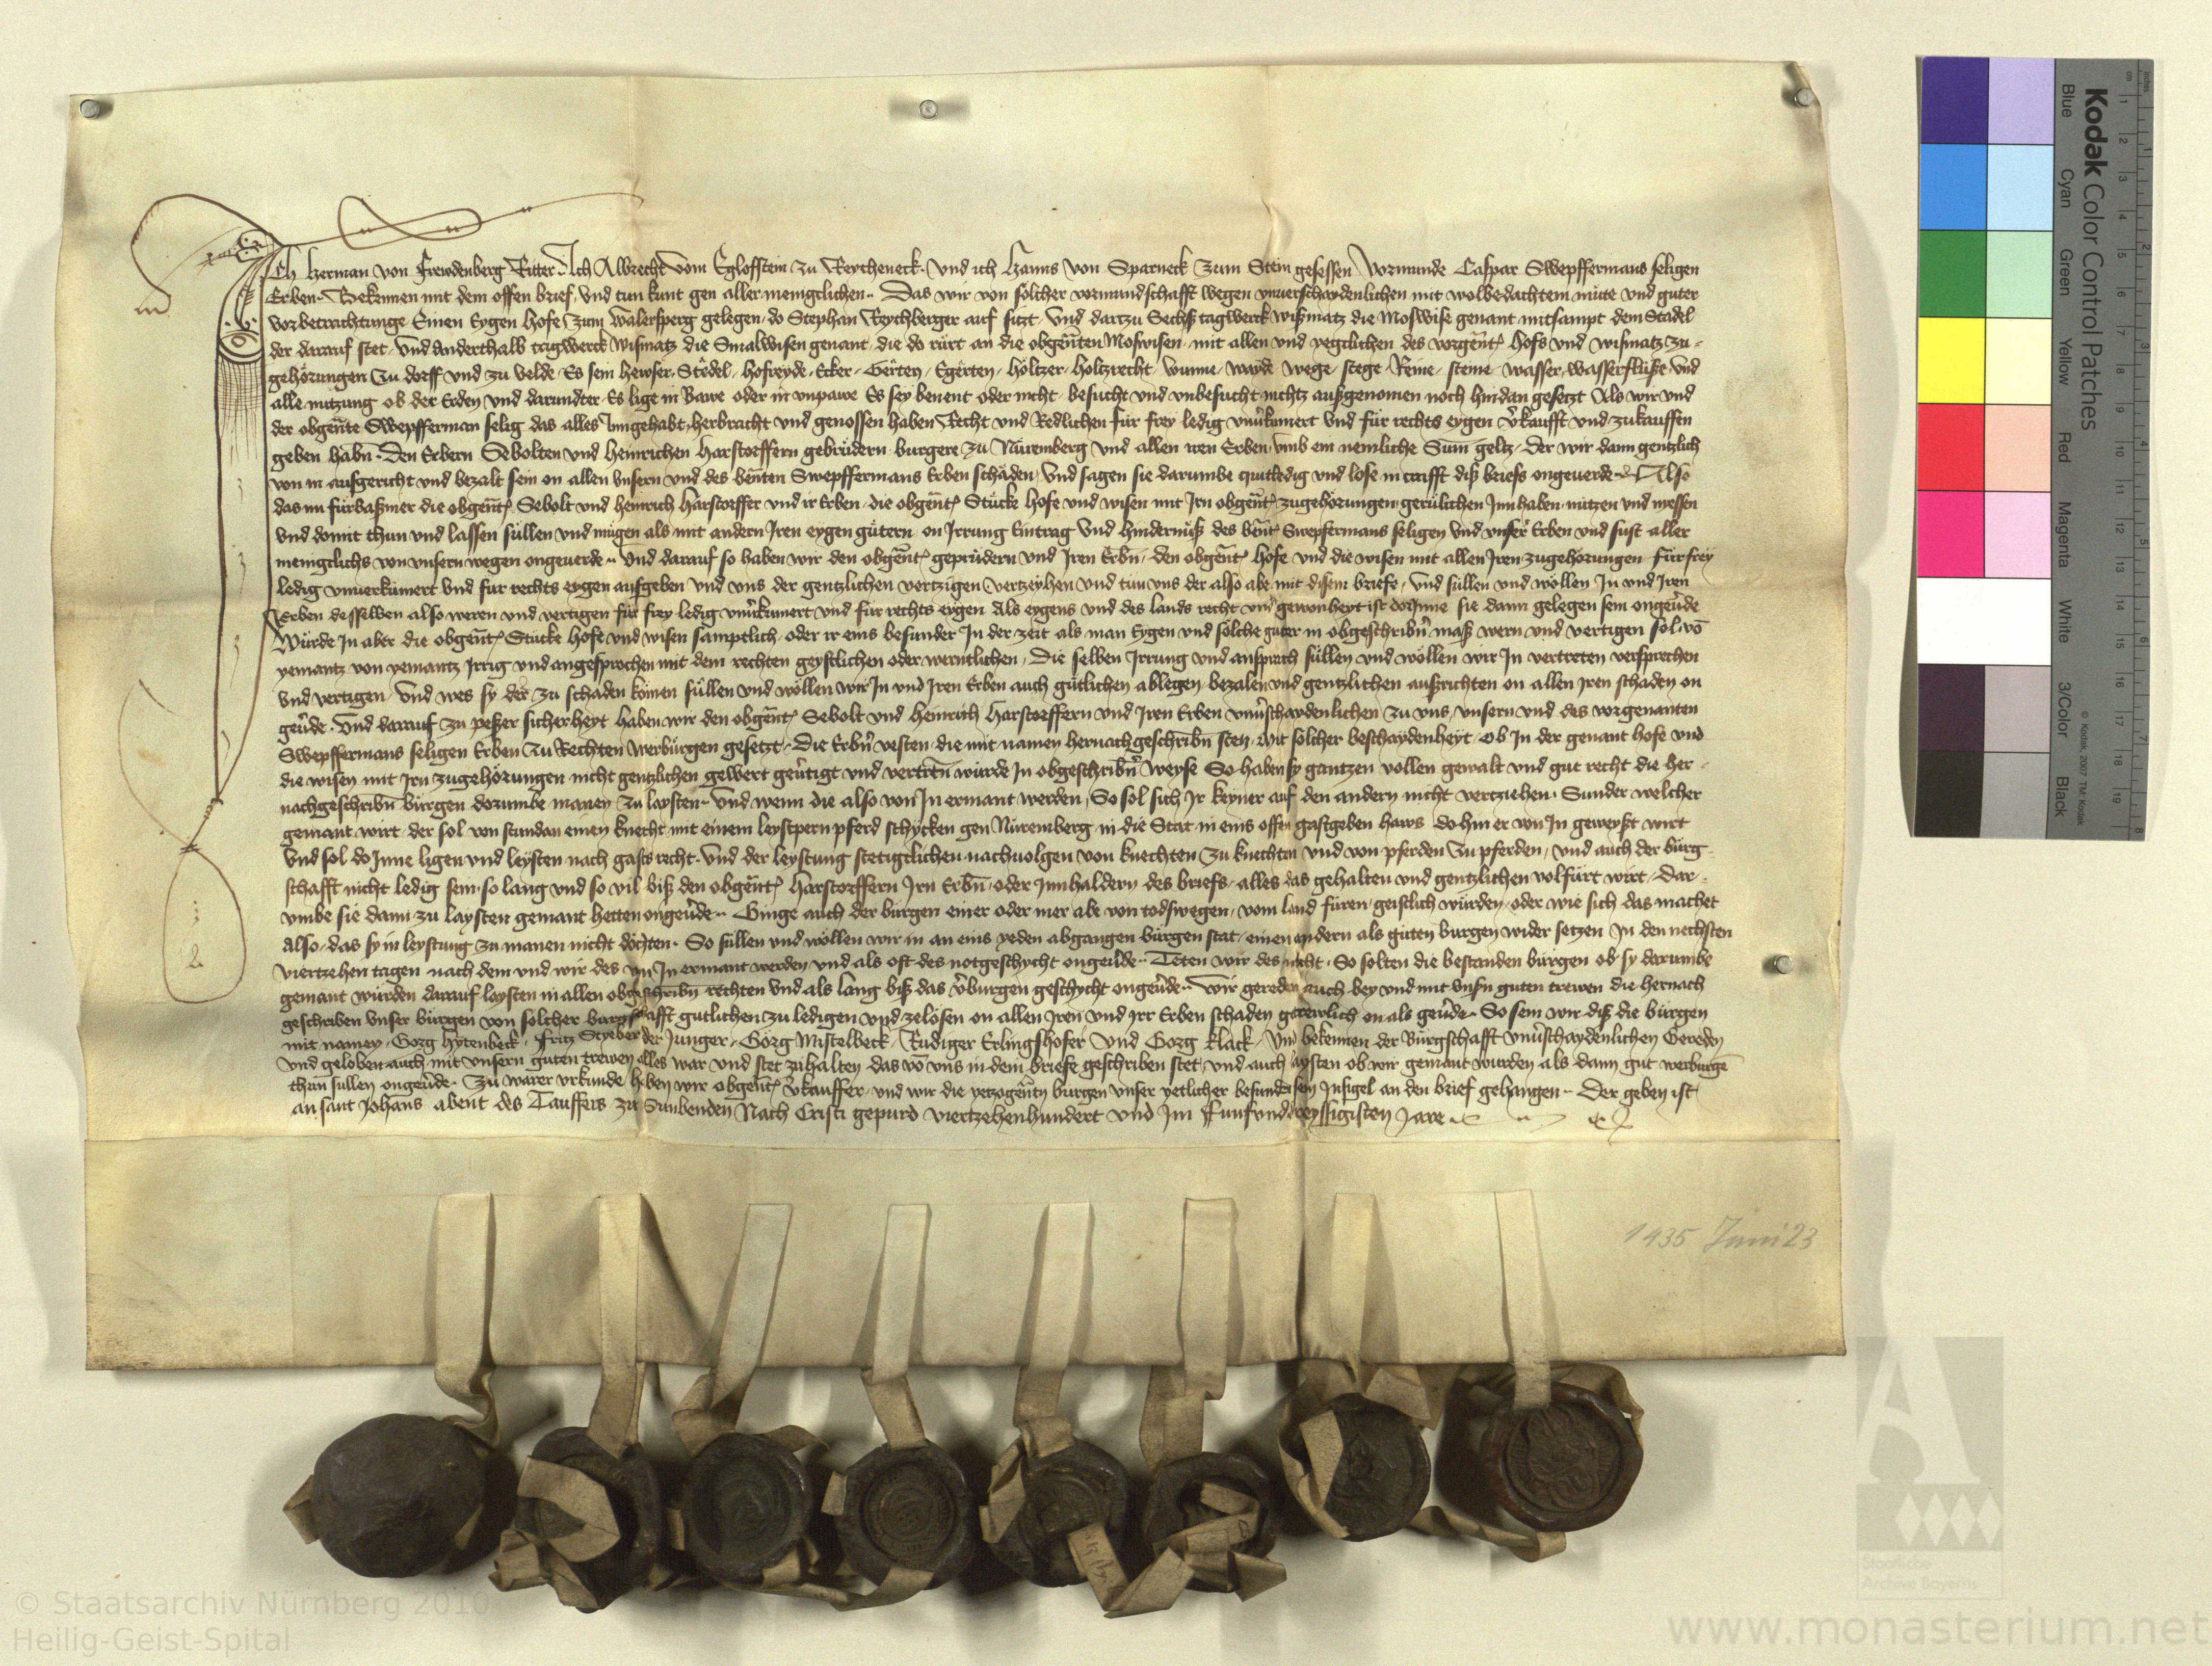 Ich Herman von Frewdenberg Ritter Ich Albrecht vom Eglofftein zu Reycheneck und ich Hanns von Sparneck zum Stein gesessen Vormunde Caspar Swepffermans seligen
Erben Bekennen mit dem offen brief und tun kunt gen aller menigclichen Das wir von solcher vormundschafft wegen vnuerschaydenlichen mit wolbedachtem mute vnd guter
vorbetrachtunge Einen Eygen Hofe zum Walersperg gelegen do Stephan Reychberger auf sitzt vnd dartzu Sechs tagwerck wißmatz die Moßwise genant mitsampt dem Stadel
der darauf stet vnd anderthalb tagwerck wismatz die Smalwisen genant die do rürt an die obgenten Moswisen mit allen vnd yegclichen des vorgent hofs vnd wismatz zu-
gehörungen zu dorff vnd zu velde Es sein hewser Stedel hofreyde Ecker Gerten Egerten höltzer holtzrecht wunne wayde wege stege Reine steine wasser wasserflüße vnd
alle nutzung ob der Erden vnd darundter Es lige in Bawe oder in vnpawe Es sey benent oder nicht besucht vnd vnbesucht nichtz außgenomen noch hindan gesetzt Als wir vnd
der obgente Swepfferman selig das alles Inngehabt herbracht vnd genossen haben Recht vnd Redlichen für frey ledig vnuerkumert vnd für rechts eygen verkaufft vnd zukauffen
geben habn Den Erbern Sebolten vnd Heinrichen Harstorffern gebrüdern burgere zu Nüremberg vnd allen iren Erben vmb ein nemliche Sum geltz Der wir dann gentzlich
von in ausgericht vnd bezalt sein on allen vnsern vnd des benten Swepffermans Erben schaden vnd sagen sie darumbe quitledig vnd lose in crafft diß briefs ongeuerde Also
das nu fürbaßmer die obgent Sebolt vnd Heinrich Harstorffer vnd ir Erben die obgent Stücke hofe vnd wisen mit Irn obgent zugehörungen gerülichen Innhaben nützen vnd niessen
vnd domit thun vnd lassen süllen vnd mügen als mit andern Iren eygen gütern on Irrung Eintrag vnd hindernüß des bent Swepfermans seligen vnd vnser Erben vnd sust aller
menigclichs von vnsern wegen ongeuerde Vnd darauf so haben wir den obgent geprüdern vnd Iren Erbn den obgent hofe vnd die wisen mit allen Iren zugehorungen für frey
ledig vnuerkumert vnd für rechts eygen aufgeben vnd vns der gentzlichen vertzigen vertzeyhen vnd tun vns der also abe mit disem briefe vnd süllen vnd wöllen In vnd Iren
Erben desselben also weren vnd vertigen für frey ledig vnuerkumert vnd für rechts eygen als eygens vnd des lands recht vnd gewonheyt ist dorInne sie dann gelegen sein ongeuerde
Würde In aber die obgent Stücke hofe vnd wisen samptlich oder ir eins besunder In der zeit als man Eygen vnd solche güter in obgeschribner maß wern vnd vertigen sol vo
yemantz von yemantz Irrig vnd angesprochen mit dem rechten geystlichen oder werntlichen Die selben Irrung vnd ansprach süllen vnd wöllen wir In vertreten versprechen
vnd vertigen vnd wes sy der zu schaden komen süllen vnd wöllen wir In vnd Iren Erben auch gütlichen ablegen bezalen vnd gentzlichen außrichten on allen Iren schaden on
geuerde Vnd darauf zu peßer sicherheyt haben wir den obgent Sebolt vnd Heinrich Harstorffern vnd Iren Erben vnuerschaydenlichen zu vns vnsern vnd des vorgenanten
Swepffermans seligen Erben zu Rechten werbürgen gesetzt Die Erbern vesten die mit namen hernachgeschribn sten mit solcher beschaydenheyt ob In der genant hofe vnd
die wisen mit Irn zugehörungen nicht gentzlichen gewert geuertigt vnd vertren würde In obgeschribner weyse So haben sy gantzen vollen gewalt vnd gut recht die her-
nachgeschribn bürgen dorumbe manen zu laysten Vnd wenn die also von In ermant werden So sol sich Ir keyner auf den andern nicht vertziehen Sunder welcher
gemant wirt der sol von stundan einen knecht mit einem leystpern pferd schicken gen Nüremberg in die Stat in eins offen gastgeben haws do hin er von In geweyßt wirt
vnd sol do Inne ligen vnd leysten nach gasts recht Vnd der leystung stetigclichen nachuolgen von knechten zu knechten vnd von pferden zu pferden vnd auch der bürg-
schafft nicht ledig sein so lang vnd so vil biß den obgent Harstorffern Irn Erbn oder Innhaldern des briefs alles das gehalten vnd gentzlichen volfürt wirt Dar-
vmbe sie dann zu laysten gemant hetten ongeuerde Ginge auch der bürgen einer oder mer abe von todswegen vom land füren geistlich würden oder wie sich das machet
also das sy in leystung zu manen nicht döchten So süllen vnd wöllen wir in an eins yeden abgangen bürgen stat einen andern als guten burgen wider setzen In den nechsten
viertzehen tagen nach dem vnd wir des von In ermant werden vnd als oft des notgeschycht ongeuerde Teten wir des nicht So solten die bestanden bürgen ob sy darumbe
gemant würden darauf laysten in allen obgeschribn rechten vnd als lang biß das verburgen geschycht ongeuerde Wir gereden auch bey vnd mit vnsern guten trewen die hernach
geschriben vnser bürgen von solcher burgschafft gutlichen zu ledigen vnd zelösen on allen Iren vnd Irr Erben schaden getrewlich on als geuerde So sein wir diß die bürgen
mit namen Gorg Hytenbeck Fritz Steber der Junger Görg Mistelbeck Rüdiger Erlingshofer vnd Gorg Klack Vnd bekennen der Bürgschafft vnuerschaydenlichen Gereden
vnd geloben auch mit vnsern guten trewen alles war vnd stet zuhalten das vo vns in dem briefe geschriben stet vnd auch laysten ob wir gemant wurden als dann gut werburgen
thun sullen ongeuerde Zu warer vrkunde haben wir obgent verkauffer vnd wir die yetzogenten burgen vnser yetlicher besunder sein Insigel an den brief gehangen Der geben ist
an sant Johans abent des Tauffers zu Sunbenden Nach Cristi gepurd viertzehenhundert vnd Im Funfvnddreyssigisten Jare
1435 Juni 23
Kodak Color Control Patches
Blue Cyan Green Yellow Red Magenta White 3/Color Black
© Kodak, 2007 TM: Kodak
© Staatsarchiv Nürnberg 2010
Heilig-Geist-Spital
Staatliche
Archive Bayerns
www.monasterium.net